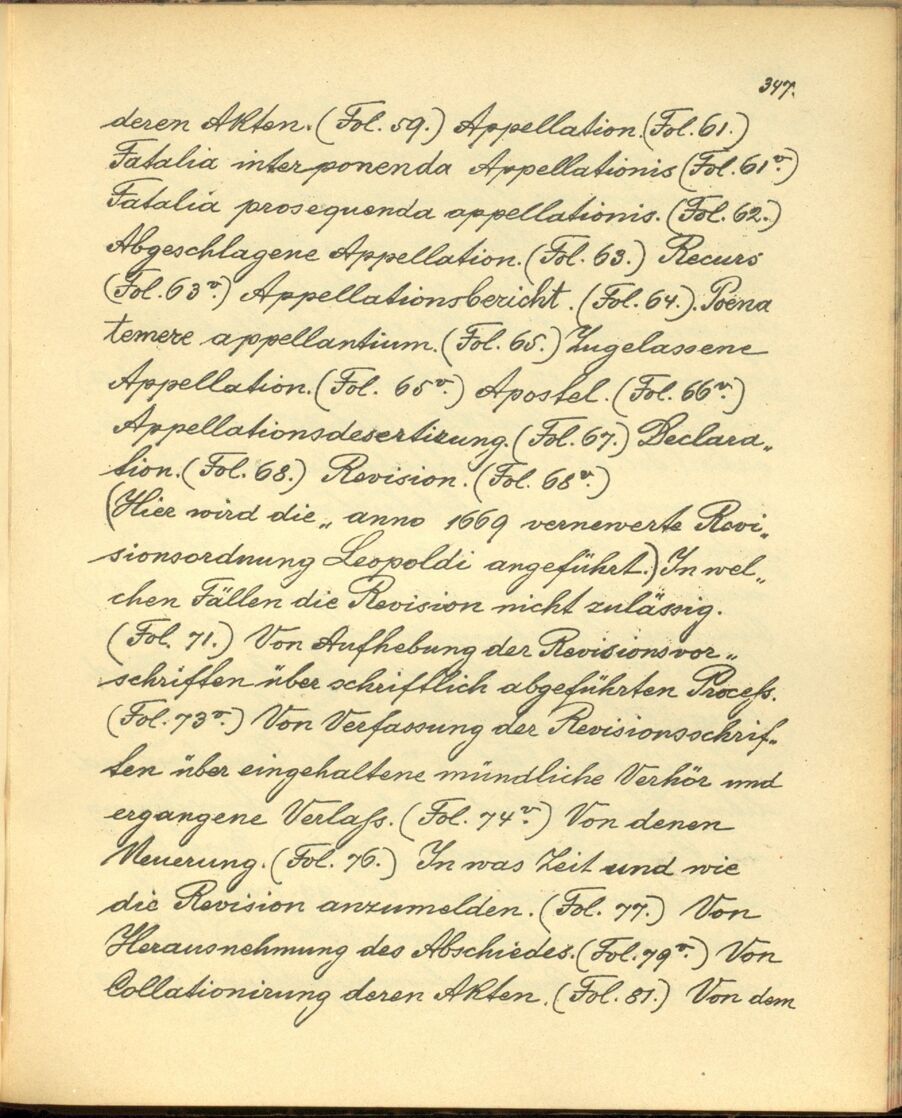 347.
deren Akten. (Fol. 59.) Appellation. (Fol. 61.)
Fatalia interponenda Appellationis (Fol. 61v.)
Fatalia prosequenda appellationis. (Fol. 62.)
Abgeschlagene Appellation. (Fol. 63.) Recurs
(Fol. 63v.) Appellationsbericht. (Fol. 64.). Poena
temere appellantium. (Fol. 65.) Zugelassene
Appellation. (Fol. 65v.) Apostel. (Fol. 66v.)
Appellationsdesertirung. (Fol. 67.) Declara„
tion. (Fol. 68.) Revision. (Fol. 68v.)
(Hier wird die „ anno 1669 vernewerte Revi„
sionsordnung Leopoldi angeführt.) In wel„
chen Fällen die Revision nicht zulässig.
(Fol. 71.) Von Aufhebung der Revisionsvor„
schriften über schriftlich abgeführten Process.
(Fol. 73v.) Von Verfassung der Revisionsschrif„
ten über eingehaltene mündliche Verhör und
ergangene Verlass. (Fol. 74v.) Von denen
Neuerung. (Fol. 76.) In was Zeit und wie
die Revision anzumelden. (Fol. 77.) Von
Herausnehmung des Abschiedes. (Fol. 79v.) Von
Collationirung deren Akten. (Fol. 81.) Von dem